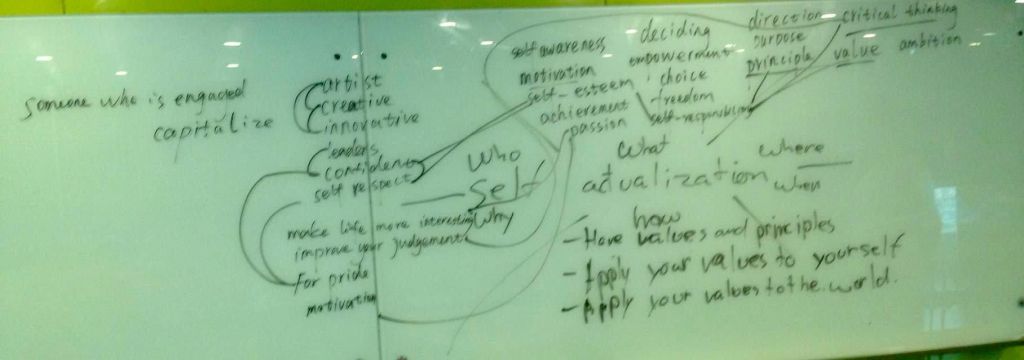 someone who is engaged
capitalize
artist
creative
innovative
leaders
confidence
self respect
make life more interesting
improve your judgement
for pride
motivation
who
self
why
self awareness
motivation
self-esteem
achievement
passion
deciding
empowerment
choice
freedom
self-responsibility
direction
purpose
principle
critical thinking
value ambition
what
where
actualization
when
how
- Have values and principles
- Apply your values to yourself
- Apply your values to the world.